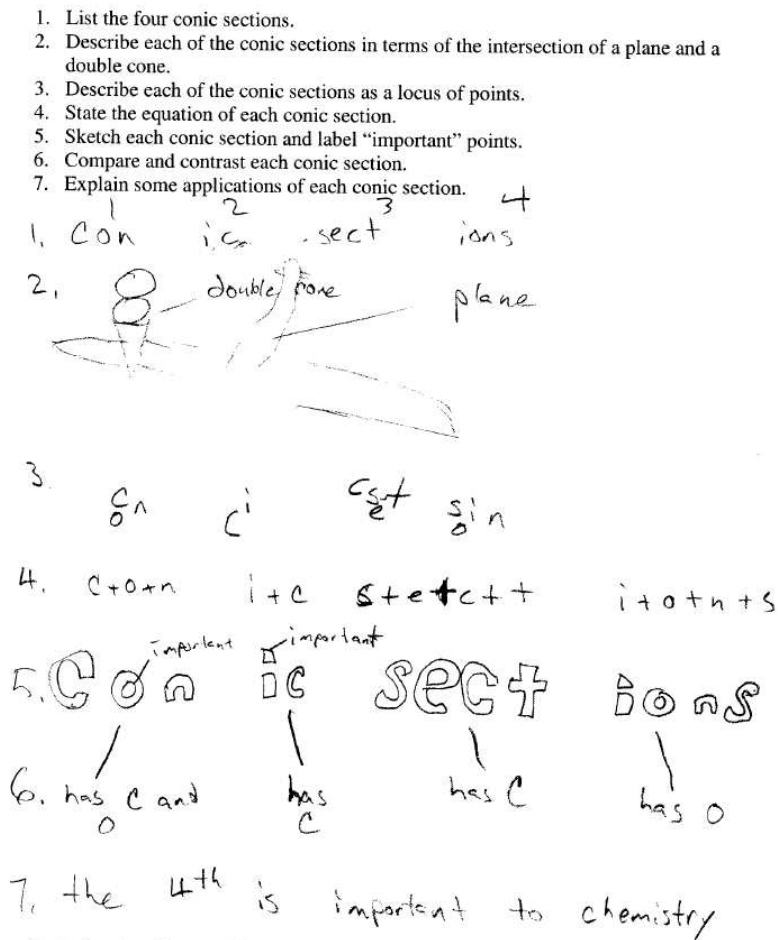 1. List the four conic sections.
2. Describe each of the conic sections in terms of the intersection of a plane and a
double cone.
3. Describe each of the conic sections as a locus of points.
4. State the equation of each conic section.
5. Sketch each conic section and label “important” points.
6. Compare and contrast each conic section.
7. Explain some applications of each conic section.
1 2 3 4
1. Con ic sect ions
2. double cone plane
3.
4. C+o+n i+c s+e+c+t i+o+n+s
important important
5. Con ic sect ions
6. has C and has has C has o
o C
7. the 4th is important to chemistry